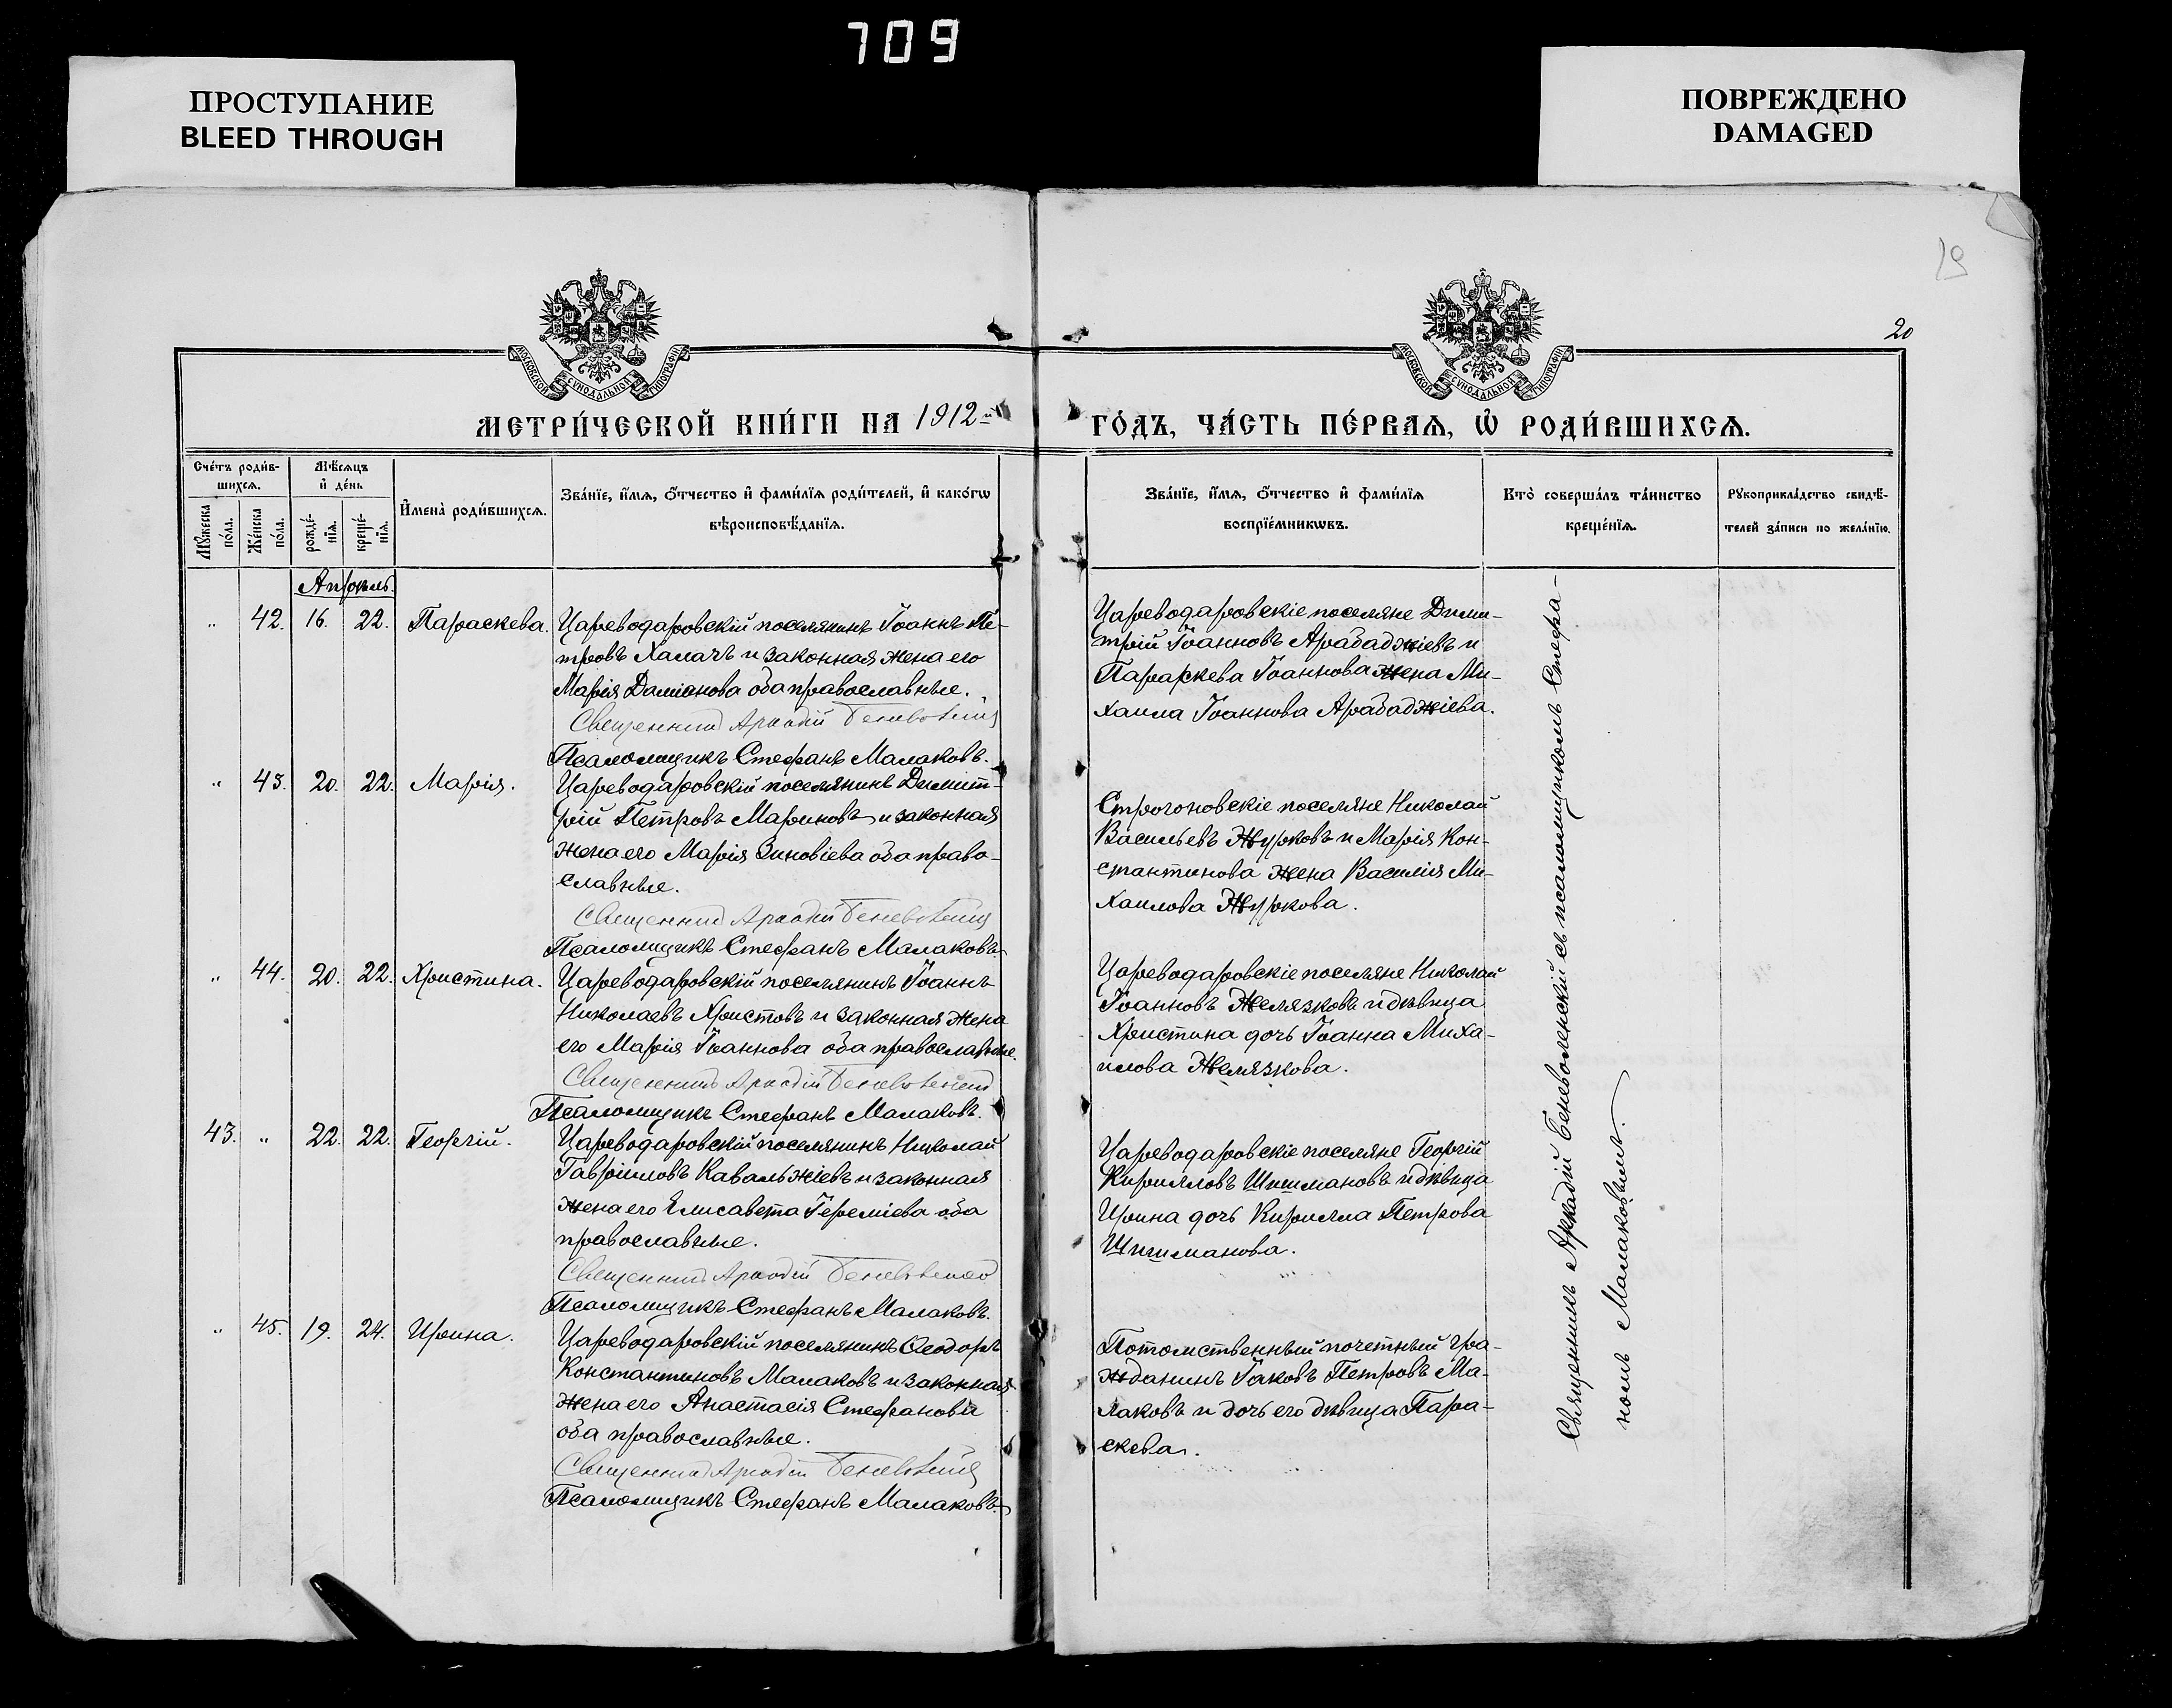 709
ПРОСТУПАНИЕ
BLEED THROUGH
ПОВРЕЖДЕНО
DAMAGED
19
20
МОСКОВСКОЙ СѴНОДАЛЬНОЙ ТИПОГРАФІИ
МОСКОВСКОЙ СѴНОДАЛЬНОЙ ТИПОГРАФІИ
МЕТРИ́ЧЕСКОЙ КНИ́ГИ НА 1912-й ГО́ДЪ, ЧА́СТЬ ПЕ́РВАѦ, Ѡ҆ РОДИ́ВШИХСѦ.
Сче́тъ роди́в-
шихсѧ.
Мꙋ́жеска
по́ла.
Же́нска
по́ла.
Мѣ́сѧцъ
и҆ де́нь
рожде́-
нїѧ.
креще́-
нїѧ.
И҆мена̀ роди́вшихсѧ.
Зва́нїе, и҆́мѧ, о҆́тчество и҆ фами́лїѧ роди́телей, и҆ како́гѡ
вѣроисповѣ́данїѧ.
Зва́нїе, и҆́мѧ, о҆́тчество и҆ фами́лїѧ
воспрїе́мникѡвъ.
Кто̀ соверша́лъ та́инство
креще́нїѧ.
Рꙋкоприкла́дство свидѣ́-
телей за́писи по жела́нїю.
Апрѣль.
„ 42. 16. 22. Параскева.
Цареводаровскій поселянинъ Іоаннъ Пе-
тровъ Халачъ и законная жена его
Марія Даміанова оба православные.
Священникъ Аркадій Беневоленскій
Псаломщикъ Стефанъ Малаковъ.
Цареводаровскіе поселяне Дими-
трій Іоанновъ Арабаджіевъ и
Параскева Іоаннова жена Ми-
хаила Іоаннова Арабаджіева.
„ 43. 20. 22. Марія.
Цареводаровскій поселянинъ Димит-
рій Петровъ Мариновъ и законная
жена его Марія Зиновіева оба право-
славные.
Священникъ Аркадій Беневоленскій
Псаломщикъ Стефанъ Малаковъ
Строгоновскіе поселяне Николай
Васильевъ Журковъ и Марія Кон-
стантинова жена Василія Ми-
хаилова Журкова.
„ 44. 20. 22. Христина.
Цареводаровскій поселянинъ Іоаннъ
Николаевъ Христовъ и законная жена
его Марія Іоаннова оба православные.
Священникъ Аркадій Беневоленскій
Псаломщикъ Стефанъ Малаковъ.
Цареводаровскіе поселяне Николай
Іоанновъ Желязковъ и дѣвица
Христина дочь Іоанна Миха-
илова Желязкова.
43. „ 22. 22. Георгій.
Цареводаровскій поселянинъ Николай
Гавріиловъ Кавальжіевъ и законная
жена его Елисавета Іереміева оба
православные.
Священникъ Аркадій Беневоленскій
Псаломщикъ Стефанъ Малаковъ.
Цареводаровскіе поселяне Георгій
Кирилловъ Шишмановъ и дѣвица
Ирина дочь Кирилла Петрова
Шишманова.
„ 45. 19. 24. Ирина.
Цареводаровскій поселянинъ Ѳеодоръ
Константиновъ Малаковъ и законная
жена его Анастасія Стефанова
оба православные.
Священникъ Аркадій Беневоленскій
Псаломщикъ Стефанъ Малаковъ
Потомственный почетный гра-
жданинъ Іаковъ Петровъ Ма-
лаковъ и дочь его дѣвица Пара-
скева.
Священникъ Аркадій Беневоленскій съ псаломщикомъ Стефа-
номъ Малаковымъ.